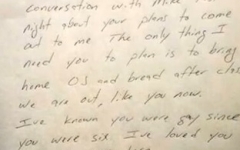 conversation with Mike
night about your plans to come
out to me The only thing I
need you to plan is to bring
home OJ and bread after class
we are out, like you now.
I've known you were gay since
you were six I've loved you